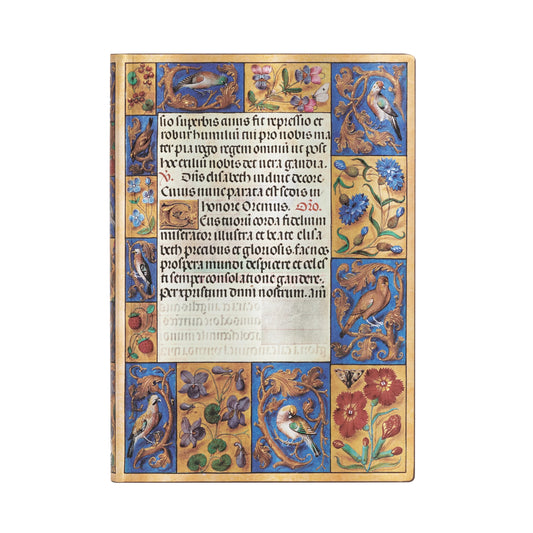 sio superbis auus fit repressio et
robur humiliū cui pro nobis ma
ter pia rogo regem omniū ut post
hec exiliū nobis det vera gaudia.
V. Diis elisabeth induit decore.
Cuius nunc parata est sedis in
honore Oremus. Oro.
eustuorū corda fidelium
miserator illustra et beate elisa
beth precibus et gloriosis fac nos
prospera mundi despicere et celes
ti semper consolatione gaudere.
Per xpristum dnm nostrum. Am